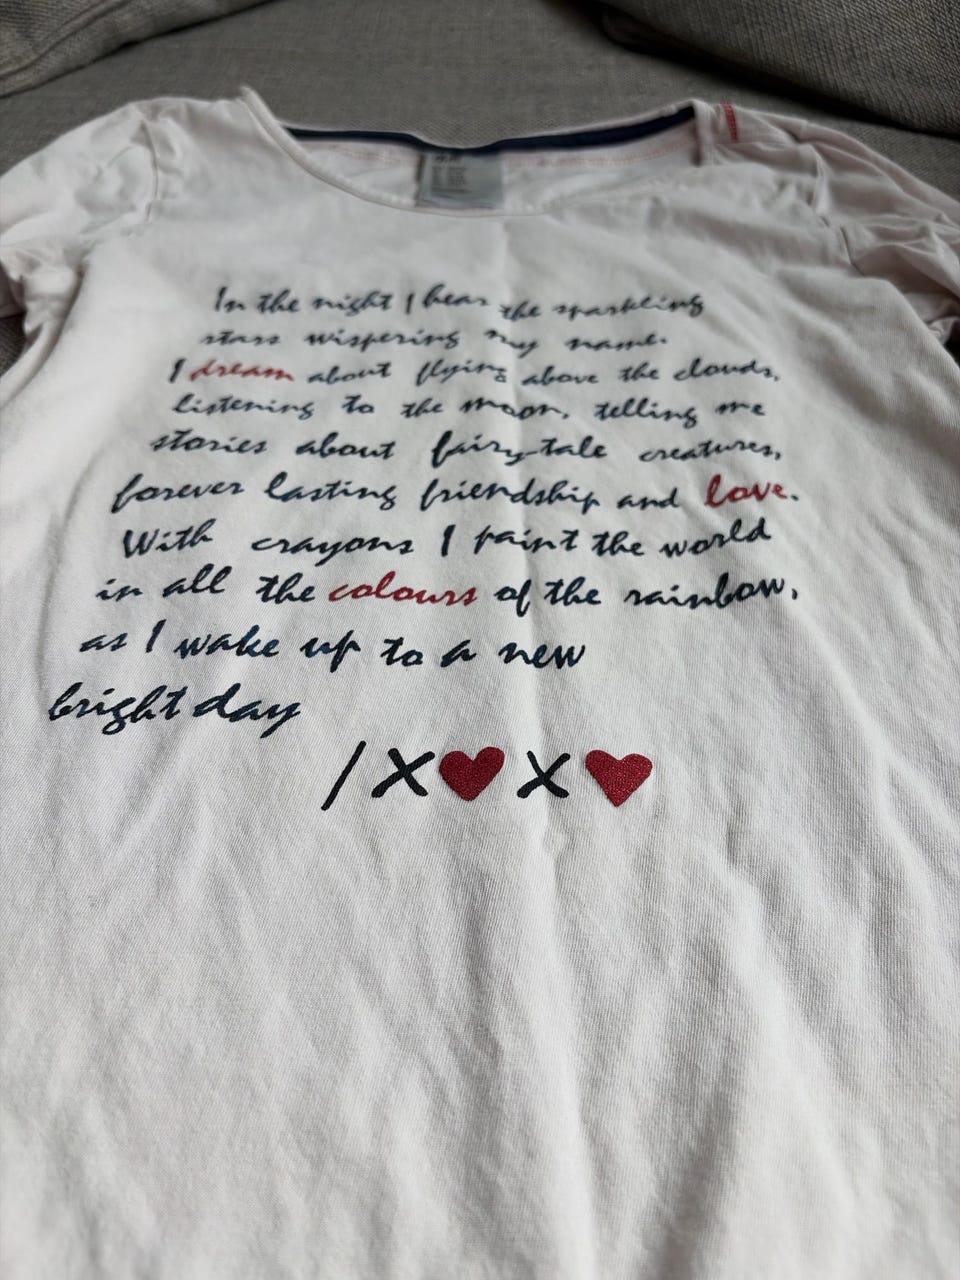 In the night I hear the sparkling
stars wispering my name.
I dream about flying above the clouds,
listening to the moon, telling me
stories about fairy-tale creatures,
forever lasting friendship and love.
With crayons I paint the world
in all the colours of the rainbow,
as I wake up to a new
bright day
/X♥X♥